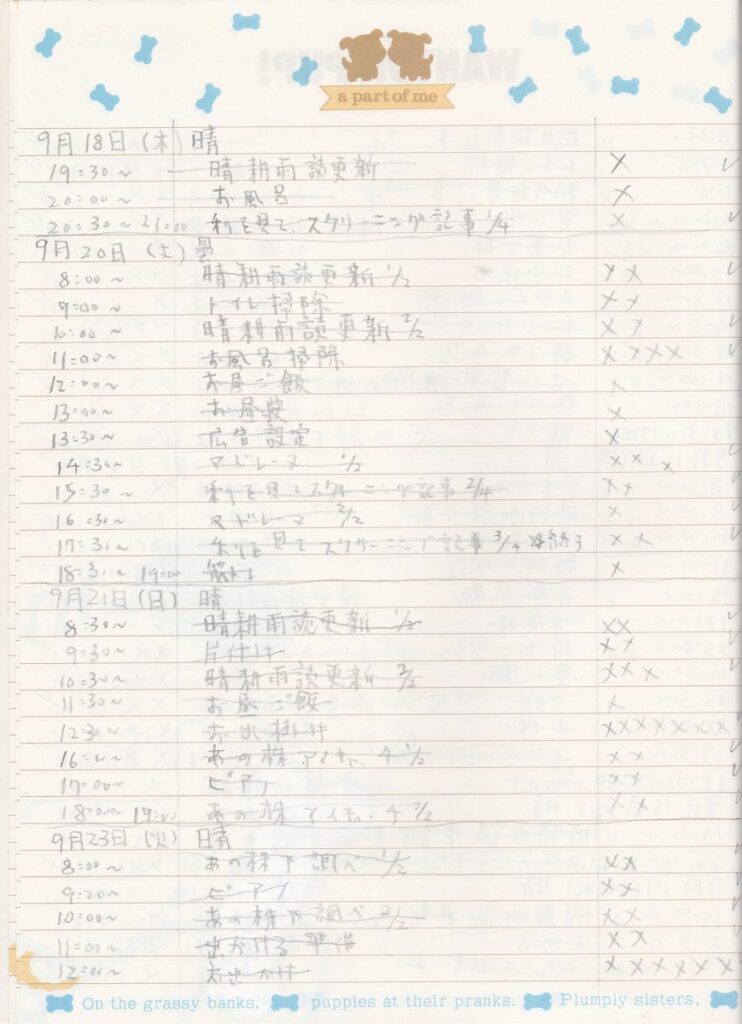 a part of me
9月18日(木) 晴
19:30~ 晴耕雨読更新 × ✓
20:00~ お風呂 ×
20:30~21:00 利を見て、スクリーニング記事1/4 × ✓
9月20日(土) 曇
8:00~ 晴耕雨読更新1/2 ×× ✓
9:00~ トイレ掃除 ××
10:00~ 晴耕雨読更新2/2 ×× ✓
11:00~ お風呂掃除 ×××× ✓
12:00~ お昼ご飯 ×
13:00~ お昼寝 ×
13:30~ 広告設定 × ✓
14:30~ マドレーヌ 1/2 ××× ✓
15:30~ 利を見てスクリーニング記事2/4 ×× ✓
16:30~ マドレーヌ 2/2 × ✓
17:30~ 利を見てスクリーニング記事3/4 終了 ×× ✓
18:30~19:00 筋トレ ×
9月21日(日) 晴
8:30~ 晴耕雨読更新 1/2 ×× ✓
9:30~ 片付け ××
10:30~ 晴耕雨読更新 2/2 ××× ✓
11:30~ お昼ご飯 ×
12:30~ お出掛け ×××××××
16:00~ あの株 1/2 ×× ✓
17:00~ ピアノ ×× ✓
18:00~19:00 あの株 2/2 ×× ✓
9月23日(火) 晴
8:00~ あの株下調べ1/2 ×× ✓
9:00~ ピアノ ×× ✓
10:00~ あの株下調べ2/2 ×× ✓
11:00~ 出かける準備 ××
12:00~ お出かけ ××××××
On the grassy banks, puppies at their pranks. Plumply sisters,